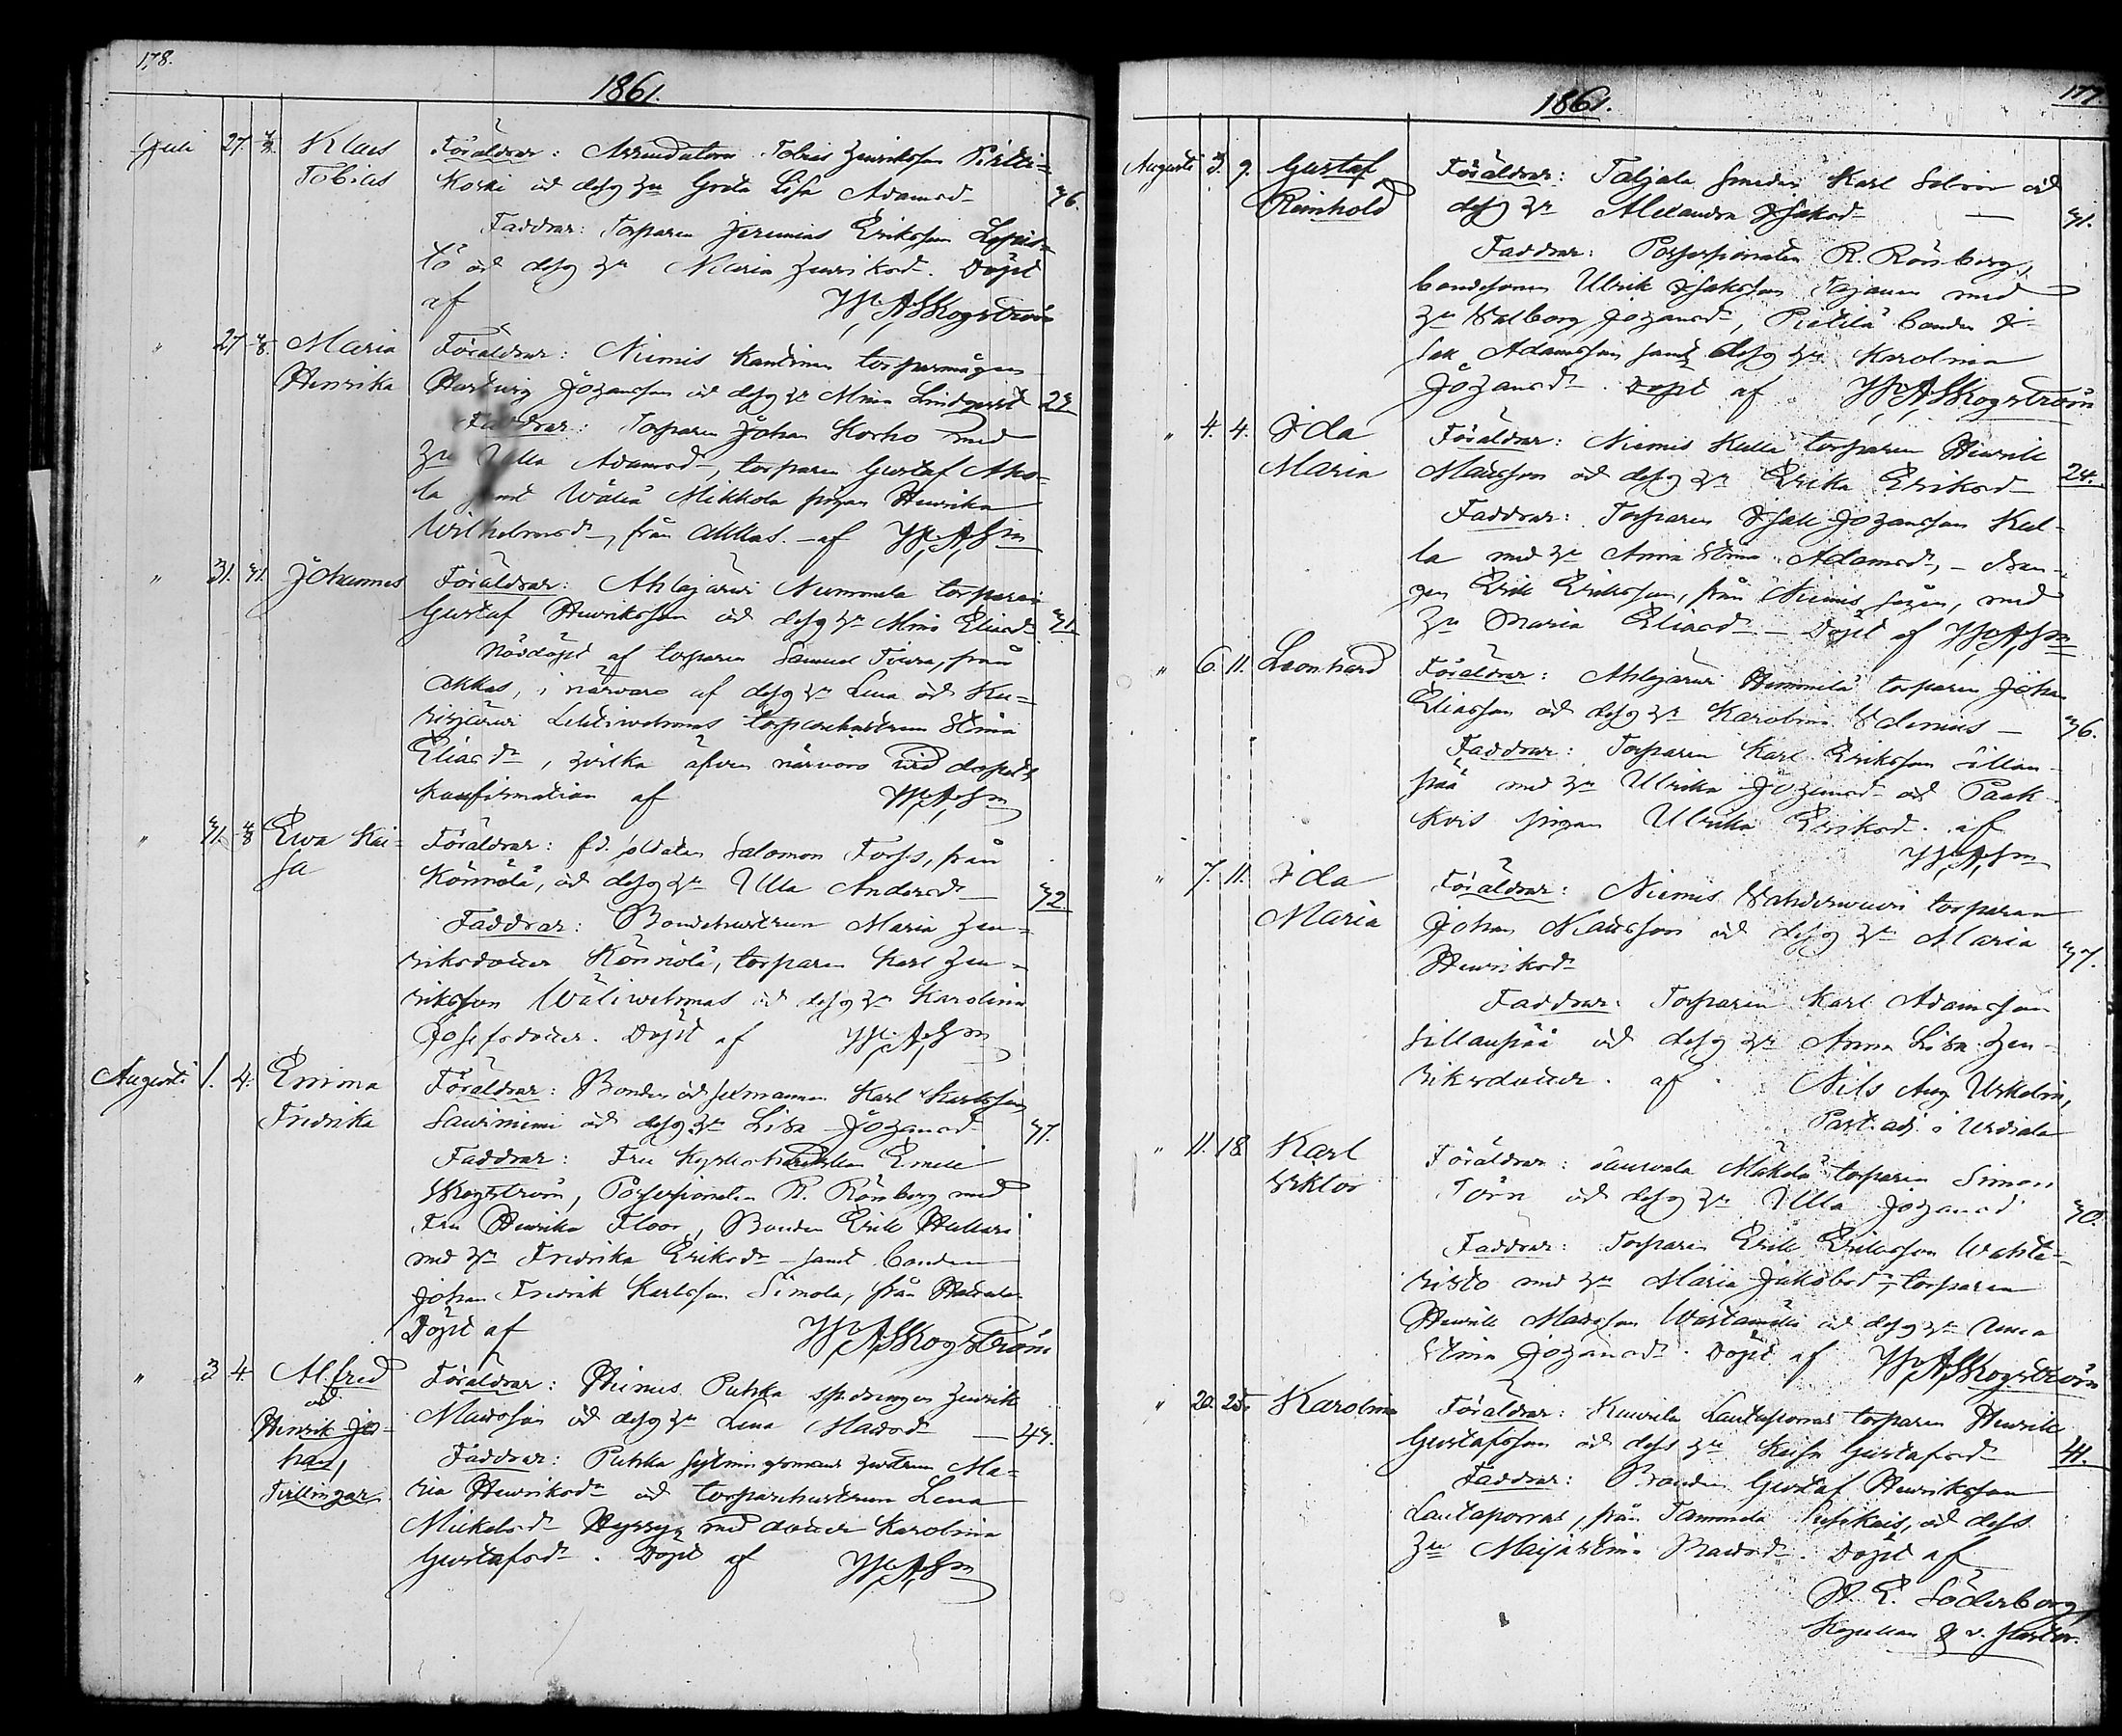 178.
1861.
Juli 27. 4/8. Klas Föräldrar: Arrendatorn Tobias Henriksson Pirtti=
Tobias koski och dess hu Greta Lisa Adamsdr 36.
Faddrar: Torparen Jeremias Eriksson
och dess hu Maria Henriksdr. Döpt
af W. A. Skogström
" 27 4/8. Maria Föräldrar: Niemis torparmågen
Henrika Hartwig Johansson och dess hu Mina Lindqvist 27
Faddrar: Torparen Johan Korho med
hu Ulla Adamsdr, torparen Gustaf Aho=
la samt Wäliä Mikkola pigan Henrika
Wilhelmsdr, från Akkas. af W. A. Sm
" 31. 31. Johannes Föräldrar: Ahlajärvi Nummela torparen
Gustaf Henriksson och dess hu Mina Eliasdr 31.
Nöddöpt af torparen Samuel från
Akkas, i närvaro af dess hu Lena och Ku=
risjärvi torparehustrun Stina
Eliasdr, hvilka äfven närvoro vid dopets
konfirmation af W. A. Sm
" 31. 4/8 Ewa Kai= Föräldrar: fd. soldaten Salomon Fors, från
sa Könnölä, och dess hu Ulla Andersdr 32.
Faddrar: Bondehustrun Maria Hen=
riksdotter Könnölä, torparen Karl Hen=
riksson Wäliwehmas och dess hu Karolina
Josefsdotter. Döpt af W. A. Sm
Augusti 1. 4. Emma Föräldrar: Bonden och sexmannen Karl Karlsson
Fredrika Saviniemi och dess hu Lisa Johansdr 37.
Faddrar: Fru Emelie
Skogström, Possessionaten R. Rönberg med
Fru Henrika Floor, Bonden Erik Hukari
med hu Fredrika Eriksdr samt bonden
Johan Fredrik Karlsson Simola, från
Döpt af W. A. Skogström
" 3 4. Alfred Föräldrar: Niemis Puhka drängen Henrik
och Madsson och dess hu Lena Madsdr 47.
Henrik Jo=
han, Faddrar: Puhka hustrun Ma=
Tvillingar ria Henriksdr och torparehustrun Lena
Mickelsdr Hyrsy med dotter Karolina
Gustafsdr. Döpt af W. A. Sm
177.
1861.
Augusti 3. 9. Gustaf Föräldrar: Taljala smeden Karl och
Reinhold dess hu Alexandra Isaksdr 31.
Faddrar: Possessionaten R. Rönberg,
bondesonen Ulrik Isaksson Tajanen med
hu Walborg Johansdr, Pietilä bonden I=
sak Adamsson samt dess hu Karolina
Johansdr. Döpt af W. A. Skogström
" 4. 4. Ida Föräldrar: Niemis Kulla torparen Henrik
Maria Madsson och dess hu Erika Eriksdr 24.
Faddrar: Torparen Isak Johansson Kul=
la med hu Anna Stina Adamsdr, drän=
gen Erik Eriksson, från Niemis med
hu Maria Eliasdr. Döpt af W. A. Sm
" 6. 11. Leonhard Föräldrar: Ahlajärvi torparen Johan
Eliasson och dess hu Karolina 36.
Faddrar: Torparen Karl Eriksson Sillan=
pää med hu Ulrika Johansdr och Paak=
kois pigan Ulrika Eriksdr. af
W. A. Sm
" 7. 11. Ida Föräldrar: Niemis torparen
Maria Johan Madsson och dess hu Maria 37.
Henriksdr
Faddrar: Torparen Karl Adamsson
Sillanpää och dess hu Anna Lisa Hen=
riksdotter. af Nils Aug
Past. adj. i Urdiala
" 11. 18 Karl Föräldrar: Mäkelä torparen Simon
Viktor Törn och dess hu Ulla Johansdr 30.
Faddrar: Torparen Erik Eriksson Wahte=
risto med hu Maria Jakobsdr, torparen
Henrik Madsson Wastamäki och dess hu Anna
Stina Johansdr. Döpt af W. A. Skogström
" 20. 25. Karolina Föräldrar: Kuurela Lautaporras torparen Henrik
Gustafsson och dess hu Kaisa Gustafsdr 41.
Faddrar: Bonden Gustaf Henriksson
Lautaporras, från Tammela och dess
hu Maija Stina Madsdr. Döpt af
A. E. Söderborg
Kapellan &